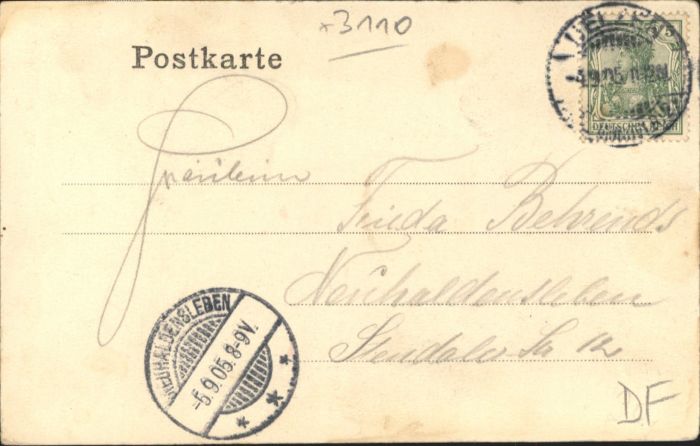 x3110
Postkarte
5
DEUTSCHES REICH
Fräulein
Frieda Behrends
Neuhaldensleben
Stendaler Str 12
NEUHALDENSLEBEN
-5.9.05.8-9V.
DF